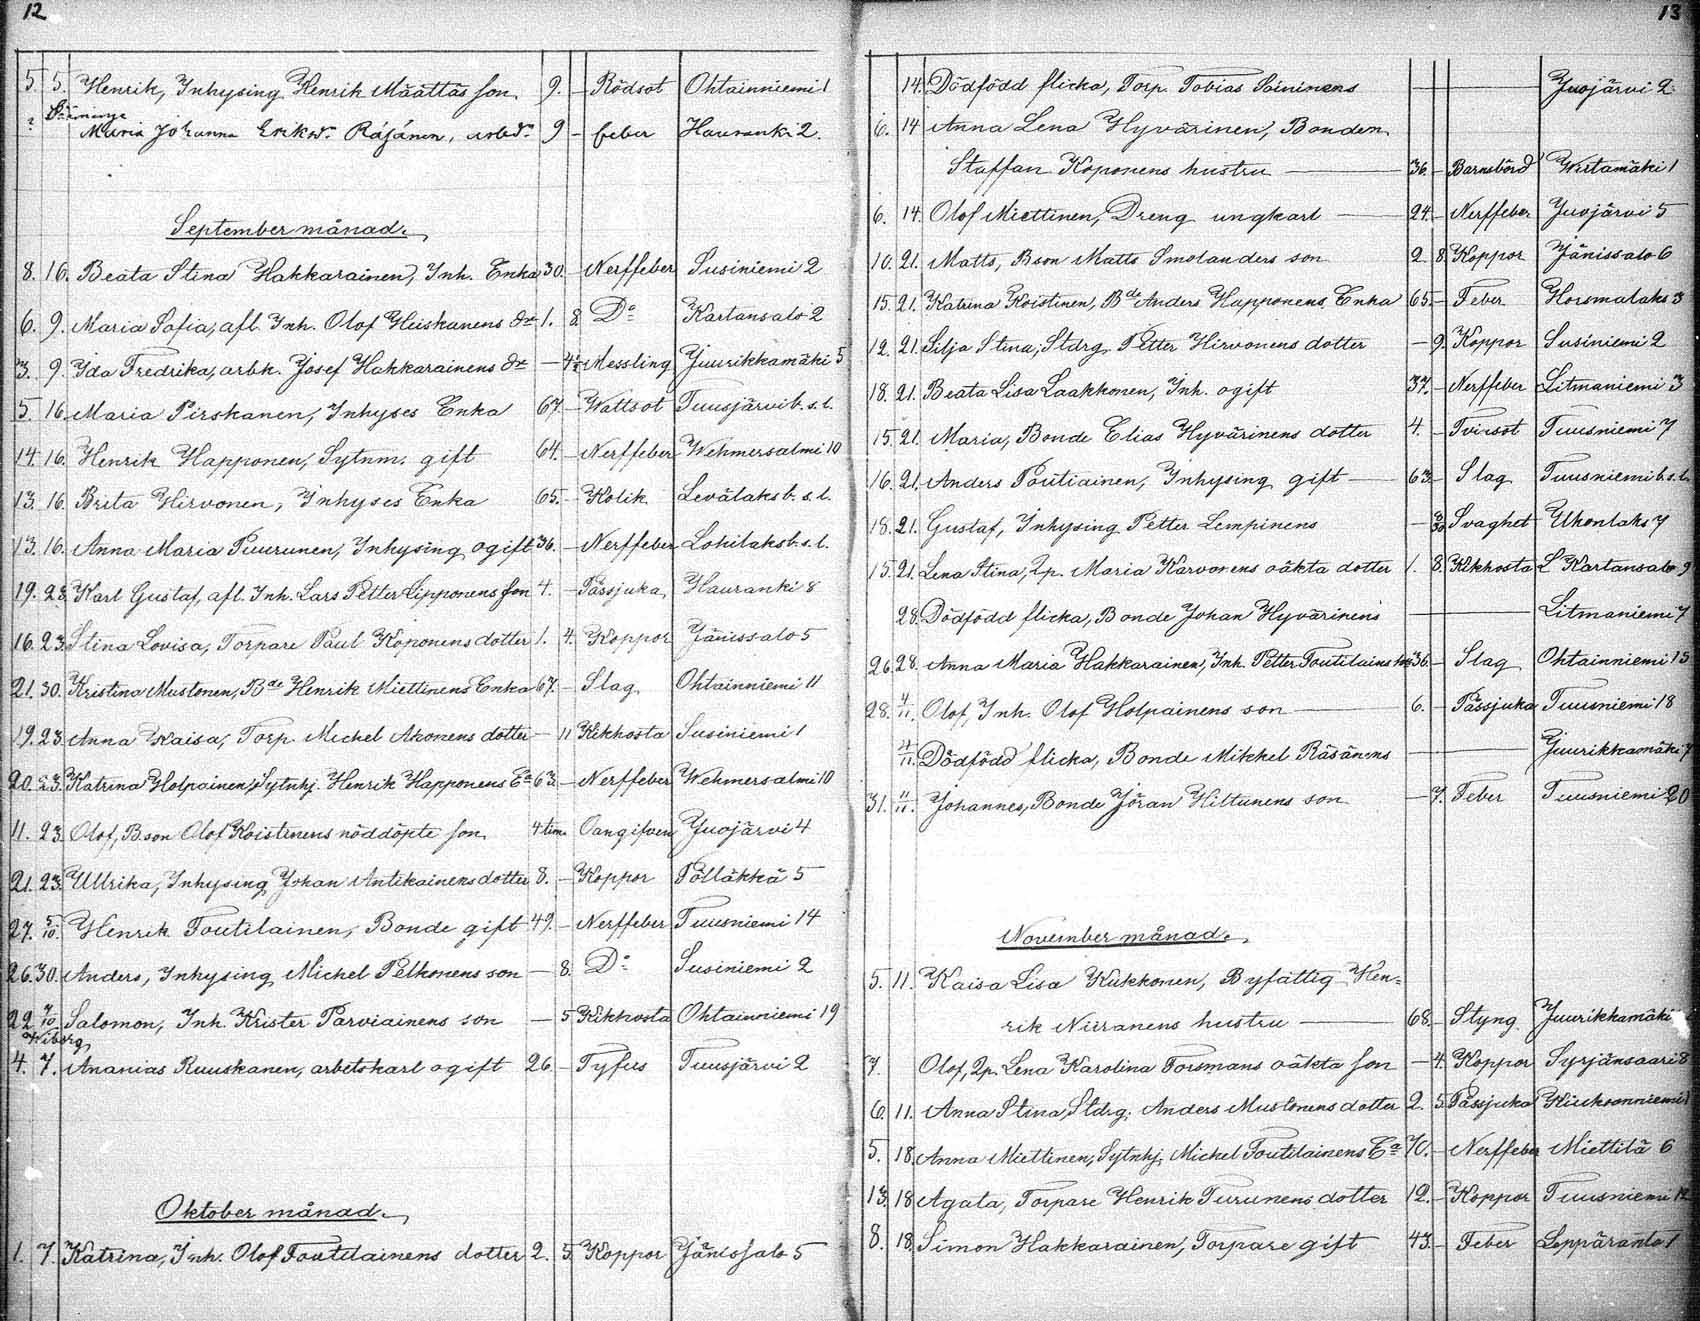 12
5. 5. Henrik, Inhysing Henrik Määttäs son 9. – Rödsot Ohtainniemi 1
? Maria Johanna Eriksdr. Räsänen, arbdr. 9 – feber Hauranki 2.
September månad.
8. 16. Beata Stina Hakkarainen, Inh. Enka 30. – Nerffeber Susiniemi 2
6. 9. Maria Sofia, afl. Inh. Olof Heiskanens dr 1. 8. Do Kartansalo 2
3. 9. Ida Fredrika, arbk. Josef Hakkarainens dr – 4½ Messling Juurikkamäki 5
5. 16. Maria Pirskanen, Inhyses Enka 67. – Wattsot Tuusjärvi b.s.l.
14. 16. Henrik Happonen, Sytnm. gift 64. – Nerffeber Wehmersalmi 10
13. 16. Brita Hirvonen, Inhyses Enka 65. – Kolik Levälaks b.s.l.
13. 16. Anna Maria Puurunen, Inhysing ogift 36. – Nerffeber Lohilaks b.s.l.
19. 23. Karl Gustaf, afl. Inh. Lars Petter Lipponens son 4. – Passjuka Hauranki 8
16. 23. Stina Lovisa, Torpare Paul Koponens dotter 1. 4. Koppor Jänissalo 5
21. 30. Kristina Mustonen, Bde Henrik Miettinens Enka 67. – Slag Ohtainniemi 11
19. 23. Anna Kaisa, Torp. Michel Ahonens dotter – 11 Kikhosta Susiniemi 1
20. 23. Katrina Holpainen, Sytnhj. Henrik Happonens Ea 63. – Nerffeber Wehmersalmi 10
11. 23. Olof, Bson Olof Koistinens nöddöpte son 4 tim. Oangifven Juojärvi 4
21. 23. Ullrika, Inhysing Johan Antikainens dotter 8. – Koppor Pölläkkä 5
27. 5/10. Henrik Toutilainen, Bonde gift 49. – Nerffeber Tuusniemi 14
26. 30. Anders, Inhysing Michel Pelkonens son – 8. Do Susiniemi 2
22 7/10 Salomon, Inh. Krister Parviainens son – 5 Kikhosta Ohtainniemi 19
Wiborg
4. 7. Ananias Ruuskanen, arbetskarl ogift 26. – Tyfus Tuusjärvi 2
Oktober månad.
1. 7. Katrina, Inh. Olof Toutilainens dotter 2. 5. Koppor Jänissalo 5
13
14. Dödfödd flicka, Torp. Tobias Soininens Juojärvi 2.
6. 14 Anna Lena Hyvärinen, Bonden
Staffan Koponens hustru 36. – Barnsbörd Wirtamäki 1
6. 14. Olof Miettinen, Dreng ungkarl 24. – Nerffeber Juojärvi 5
10. 21. Matts, Bson Matts Smolanders son 2 8 Koppor Jänissalo 6
15. 21. Katrina Koistinen, Bde Anders Happonens Enka 65. – Feber Horsmalaks 3
12. 21. Silja Stina, Stdrg Petter Hirvonens dotter – 9. Koppor Susiniemi 2
18. 21. Beata Lisa Laakkonen, Inh. ogift 37. – Nerffeber Litmaniemi 3
15. 21. Maria, Bonde Elias Hyvärinens dotter 4. – Tvinsot Tuusniemi 7
16. 21. Anders Poutiainen, Inhysing gift 63. – Slag Tuusniemi b.s.l.
18. 21. Gustaf, Inhysing Petter Lempinens – 8/30 Svaghet Ukonlaks 7
15. 21. Lena Stina, Qp. Maria Karvonens oäkta dotter 1. 8. Kikhosta L Kartansalo 9
28. Dödfödd flicka, Bonde Johan Hyvärinens Litmaniemi 7
26. 28. Anna Maria Hakkarainen, Inh. Petter Toutilains hu 36. – Slag Ohtainniemi 15
28. 4/11. Olof, Inh. Olof Holpainens son 6. – Passjuka Tuusniemi 18
4/11. Dödfödd flicka, Bonde Mikkel Räsänens Juurikkamäki 7
31. 4/11. Johannes, Bonde Jöran Hiltunens son – 7. Feber Tuusniemi 20
November månad.
5. 11. Kaisa Lisa Kukkonen, Byfattig Hen=
rik Niiranens hustru 68. – Styng Juurikkamäki
7. Olof, Qp. Lena Karolina Forsmans oäkta son – 4. Koppor Syrjänsaari 8
6. 11. Anna Stina, Stdrg. Anders Mustonens dotter 2. 5. Passjuka
5. 18. Anna Miettinen, Sytnhj. Michel Toutilainens Ea 70. – Nerffeber Miettilä 6
13. 18 Agata, Torpare Henrik Turunens dotter 12. – Koppor Tuusniemi 12
8. 18. Simon Hakkarainen, Torpare gift 43. – Feber Leppäranta 1